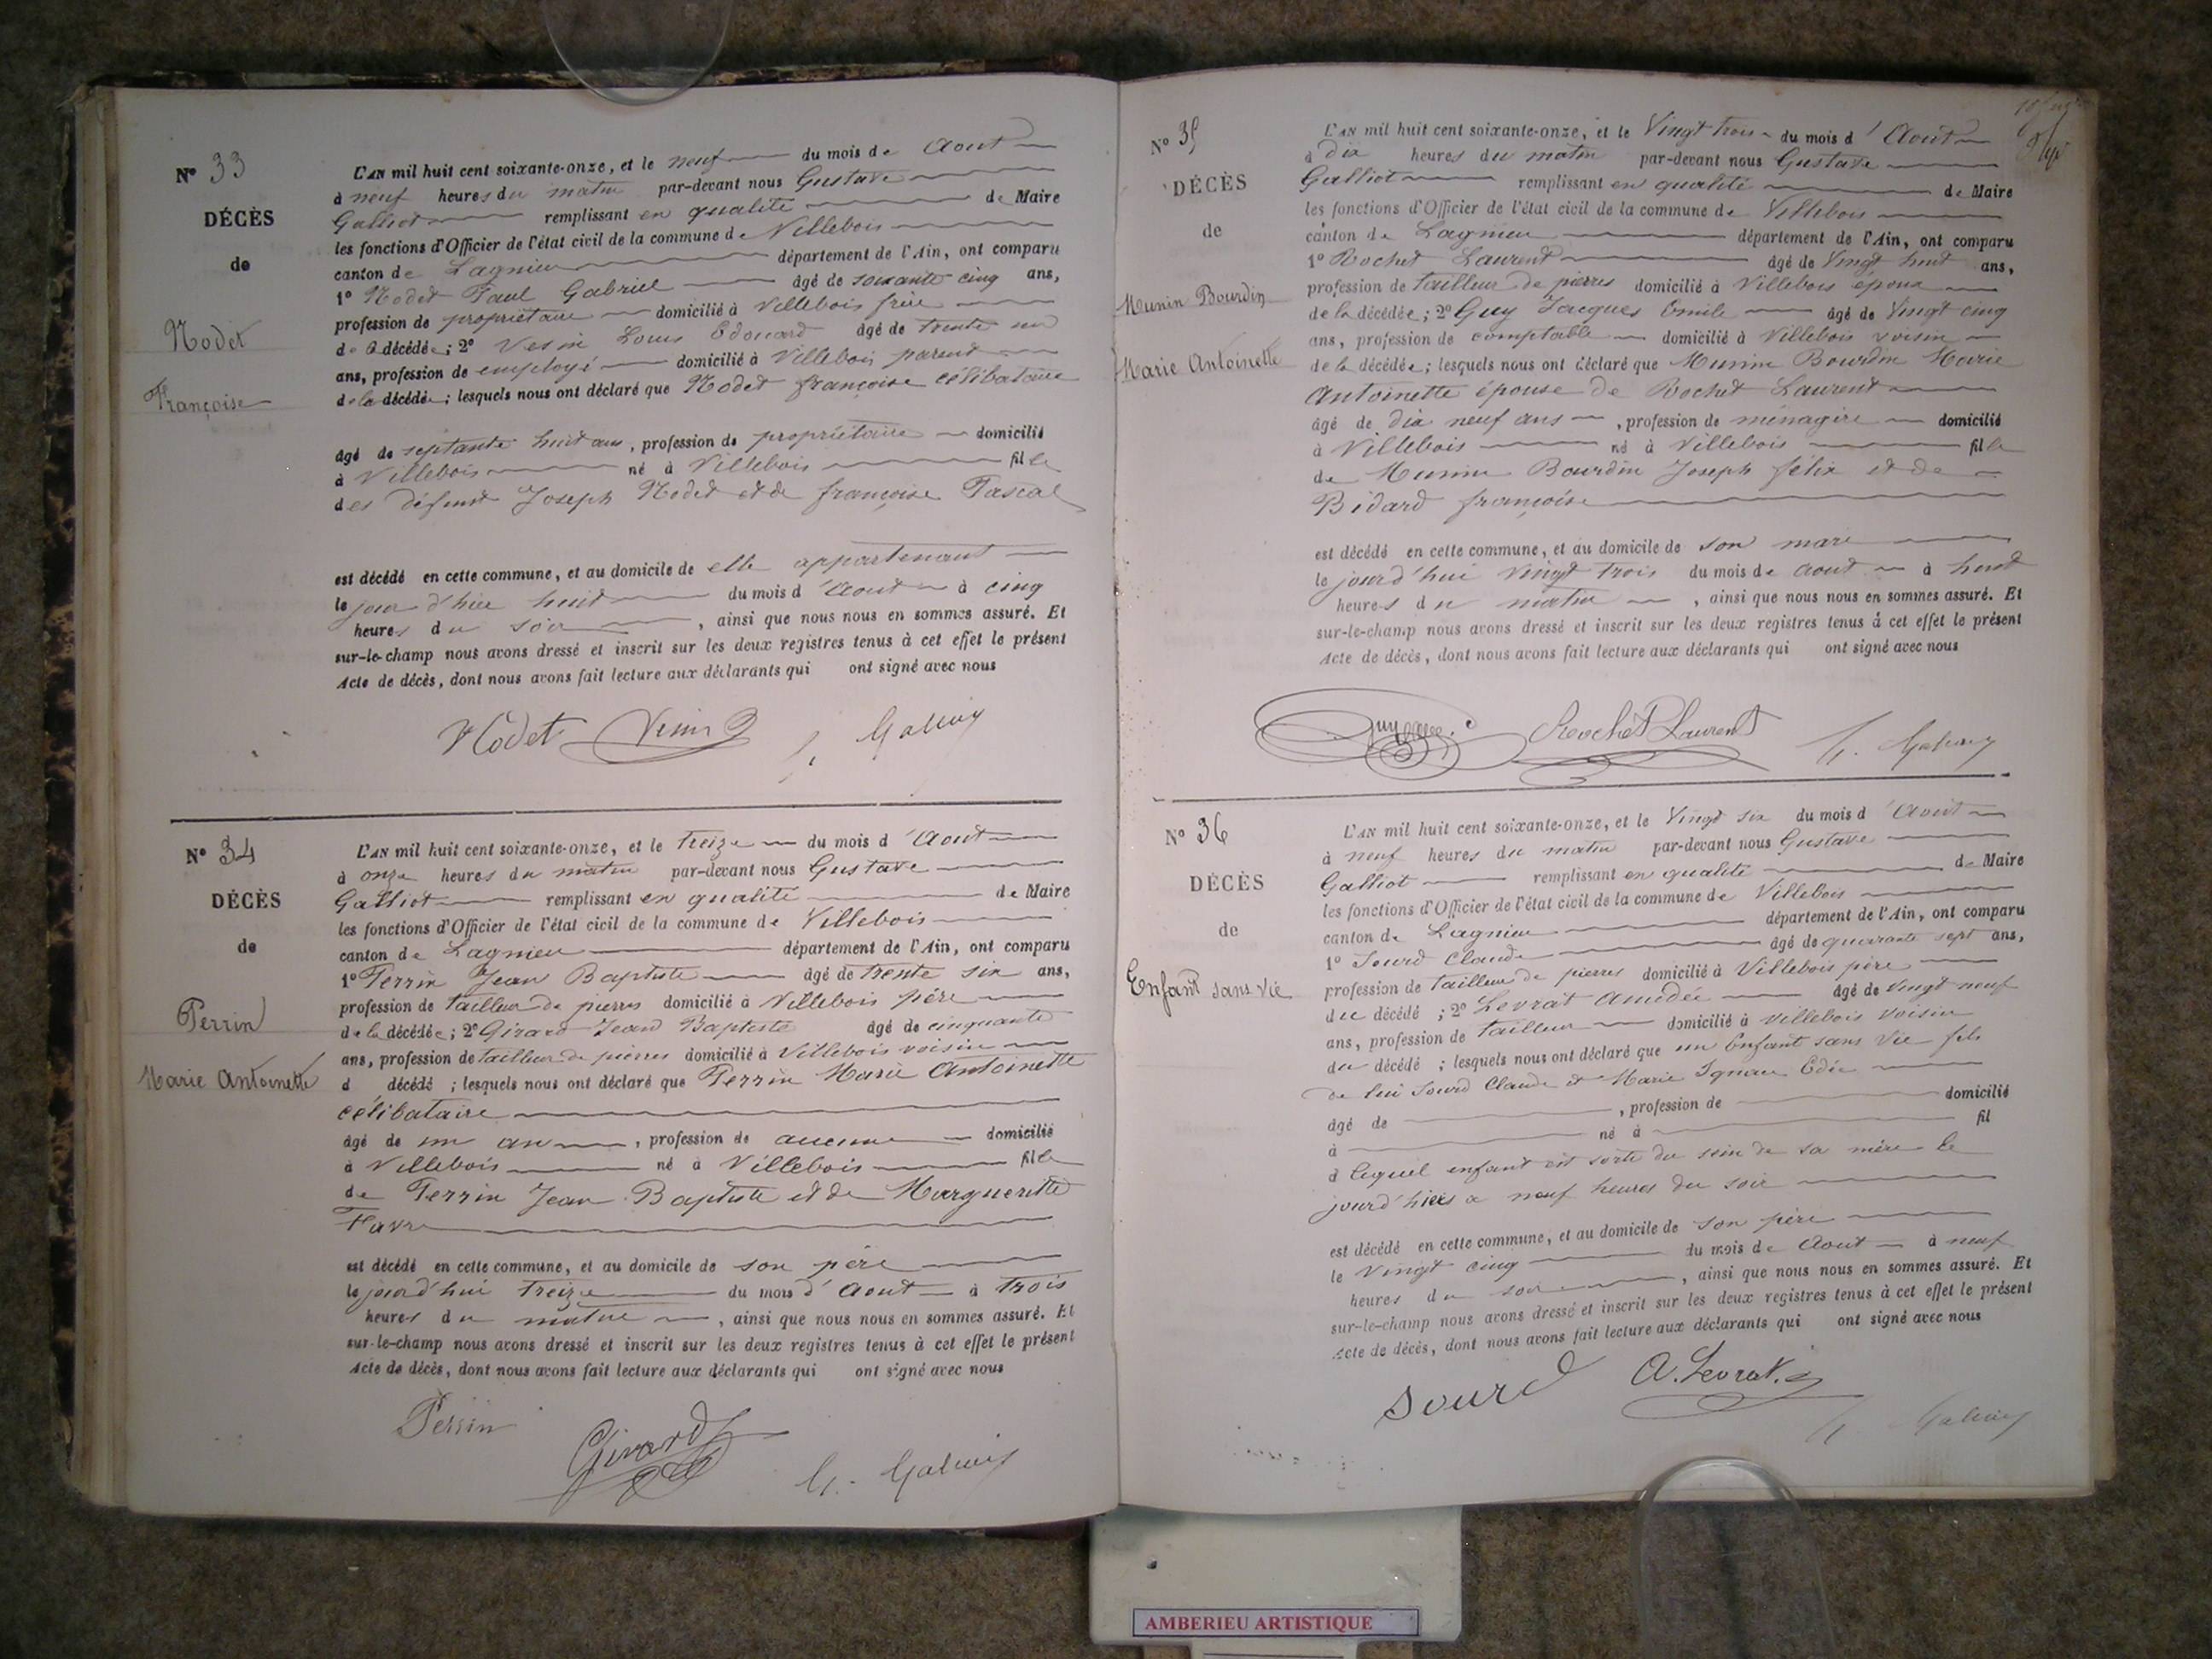 N° 33
DÉCÈS
de
Nodet
Françoise
L'AN mil huit cent soixante-onze, et le neuf du mois de Aout
à neuf heures du matin par-devant nous Gustave
Galliot remplissant en qualité de Maire
les fonctions d'Officier de l'état civil de la commune de Villebois
canton de Lagnieu département de l'Ain, ont comparu
1° Nodet Paul Gabriel âgé de soixante cinq ans,
profession de propriétaire domicilié à Villebois frère
de la décédée; 2° Vesin Louis Edouard âgé de trente un
ans, profession de employé domicilié à Villebois parent
de la décédée; lesquels nous ont déclaré que Nodet françoise célibataire
âgé de septante huit ans, profession de propriétaire domicilié
à Villebois né à Villebois fille
des défunt Joseph Nodet et de françoise Pascal
est décédé en cette commune, et au domicile de elle appartenant
le jour d'hier huit du mois d'Aout à cinq
heures du soir, ainsi que nous nous en sommes assuré. Et
sur-le-champ nous avons dressé et inscrit sur les deux registres tenus à cet effet le présent
Acte de décès, dont nous avons fait lecture aux déclarants qui ont signé avec nous
Nodet Vesin
N° 34
DÉCÈS
de
Perrin
Marie Antoinette
L'AN mil huit cent soixante-onze, et le treize du mois d'Aout
à onze heures du matin par-devant nous Gustave
Galliot remplissant en qualité de Maire
les fonctions d'Officier de l'état civil de la commune de Villebois
canton de Lagnieu département de l'Ain, ont comparu
1° Perrin Jean Baptiste âgé de trente six ans,
profession de tailleur de pierres domicilié à Villebois père
de la décédée; 2° Girard Jean Baptiste âgé de cinquante
ans, profession de tailleur de pierres domicilié à Villebois voisin
d décédé; lesquels nous ont déclaré que Perrin Marie Antoinette
célibataire
âgé de un an, profession de aucune domicilié
à Villebois né à Villebois fille
de Perrin Jean Baptiste et de Margueritte
Favre
est décédé en cette commune, et au domicile de son père
le jourd'hui treize du mois d'Aout à trois
heures du matin, ainsi que nous nous en sommes assuré. Et
sur-le-champ nous avons dressé et inscrit sur les deux registres tenus à cet effet le présent
Acte de décès, dont nous avons fait lecture aux déclarants qui ont signé avec nous
Perrin
Girard
N° 35
DÉCÈS
de
Munin Bourdin
Marie Antoinette
L'AN mil huit cent soixante-onze, et le Vingt trois du mois d'Aout
à dix heures du matin par-devant nous Gustave
Galliot remplissant en qualité de Maire
les fonctions d'Officier de l'état civil de la commune de Villebois
canton de Lagnieu département de l'Ain, ont comparu
1° Rochet Laurent âgé de Vingt huit ans,
profession de tailleur de pierres domicilié à Villebois époux
de la décédée; 2° Guy Jacques Emile âgé de Vingt cinq
ans, profession de comptable domicilié à Villebois voisin
de la décédée; lesquels nous ont déclaré que Munin Bourdin Marie
Antoinette épouse de Rochet Laurent
âgé de dix neuf ans, profession de ménagère domicilié
à Villebois né à Villebois fille
de Munin Bourdin Joseph félix et de
Bidard françoise
est décédé en cette commune, et au domicile de son mari
le jourd'hui vingt trois du mois de aout à huit
heures du matin, ainsi que nous nous en sommes assuré. Et
sur-le-champ nous avons dressé et inscrit sur les deux registres tenus à cet effet le présent
Acte de décès, dont nous avons fait lecture aux déclarants qui ont signé avec nous
Guy Rochet Laurent
N° 36
DÉCÈS
de
Enfant sans vie
L'AN mil huit cent soixante-onze, et le Vingt six du mois d'Aout
à neuf heures du matin par-devant nous Gustave
Galliot remplissant en qualité de Maire
les fonctions d'Officier de l'état civil de la commune de Villebois
canton de Lagnieu département de l'Ain, ont comparu
1° Sourd Claude âgé de quarante sept ans,
profession de tailleur de pierres domicilié à Villebois père
du décédé; 2° Levrat Amédée âgé de vingt neuf
ans, profession de tailleur domicilié à Villebois voisin
du décédé; lesquels nous ont déclaré que un Enfant sans Vie fils
de lui Sourd Claude et Marie
âgé de , profession de domicilié
à né à fil
d lequel enfant est sorti du sein de sa mère le
jourd'hier à neuf heures du soir
est décédé en cette commune, et au domicile de son père
le vingt cinq du mois de Aout à neuf
heures du soir, ainsi que nous nous en sommes assuré. Et
sur-le-champ nous avons dressé et inscrit sur les deux registres tenus à cet effet le présent
Acte de décès, dont nous avons fait lecture aux déclarants qui ont signé avec nous
Sourd A. Levrat
AMBERIEU ARTISTIQUE